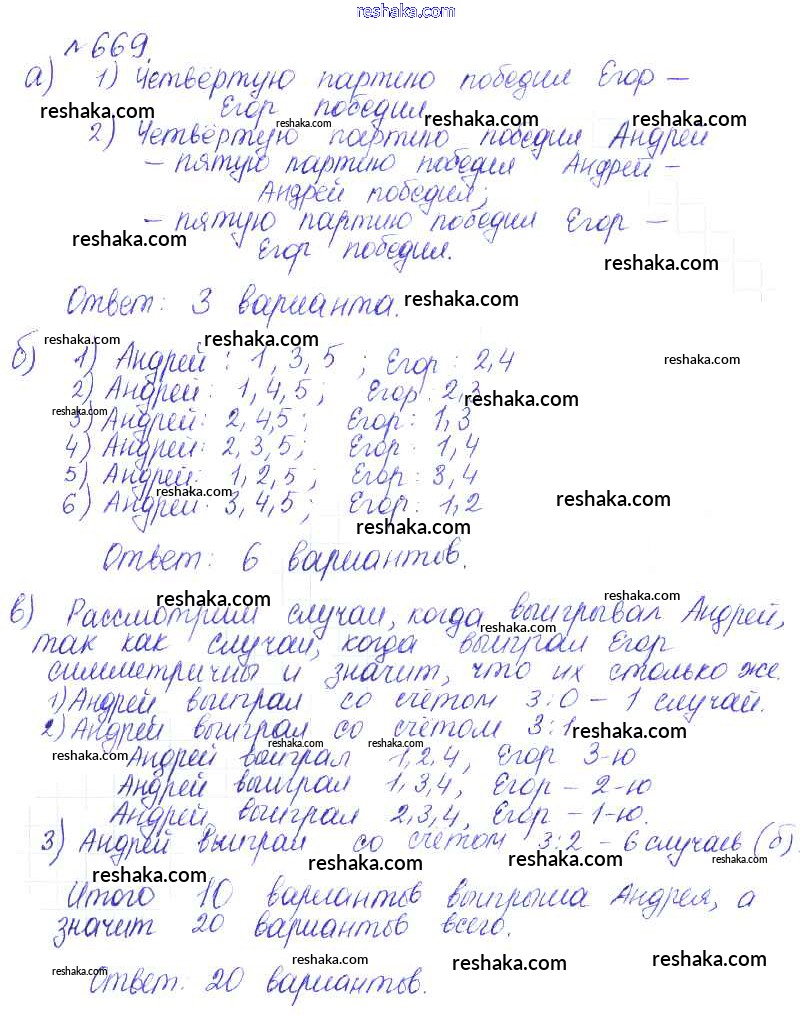 reshaka.com
№669.
а) 1) Четвёртую партию победил Егор –
Егор победил
reshaka.com reshaka.com reshaka.com reshaka.com
2) Четвёртую партию победил Андрей
– пятую партию победил Андрей –
Андрей победил;
– пятую партию победил Егор –
reshaka.com
Егор победил.
reshaka.com
Ответ: 3 варианта.
reshaka.com
reshaka.com reshaka.com
б) 1) Андрей: 1, 3, 5; Егор: 2,4
reshaka.com
2) Андрей: 1,4,5; Егор: 2,3
reshaka.com
reshaka.com
3) Андрей: 2,4,5; Егор: 1,3
4) Андрей: 2,3,5; Егор: 1,4
5) Андрей: 1,2,5; Егор: 3,4
reshaka.com
6) Андрей: 3,4,5; Егор: 1,2
reshaka.com
reshaka.com
Ответ: 6 вариантов.
reshaka.com reshaka.com
в) Рассмотрим случаи, когда выигрывал Андрей,
reshaka.com
так как случаи, когда выиграл Егор
симметричны и значит, что их столько же.
1) Андрей выиграл со счётом 3:0 – 1 случай.
2) Андрей выиграл со счётом 3:1
reshaka.com
reshaka.com reshaka.com reshaka.com
Андрей выиграл 1,2,4, Егор 3-ю
Андрей выиграл 1,3,4, Егор – 2-ю
Андрей выиграл 2,3,4, Егор – 1-ю.
3) Андрей выиграл со счётом 3:2 – 6 случаев (б).
reshaka.com reshaka.com reshaka.com
reshaka.com
Итого 10 вариантов выигрыша Андрея, а
значит 20 вариантов всего.
reshaka.com reshaka.com reshaka.com reshaka.com
Ответ: 20 вариантов.